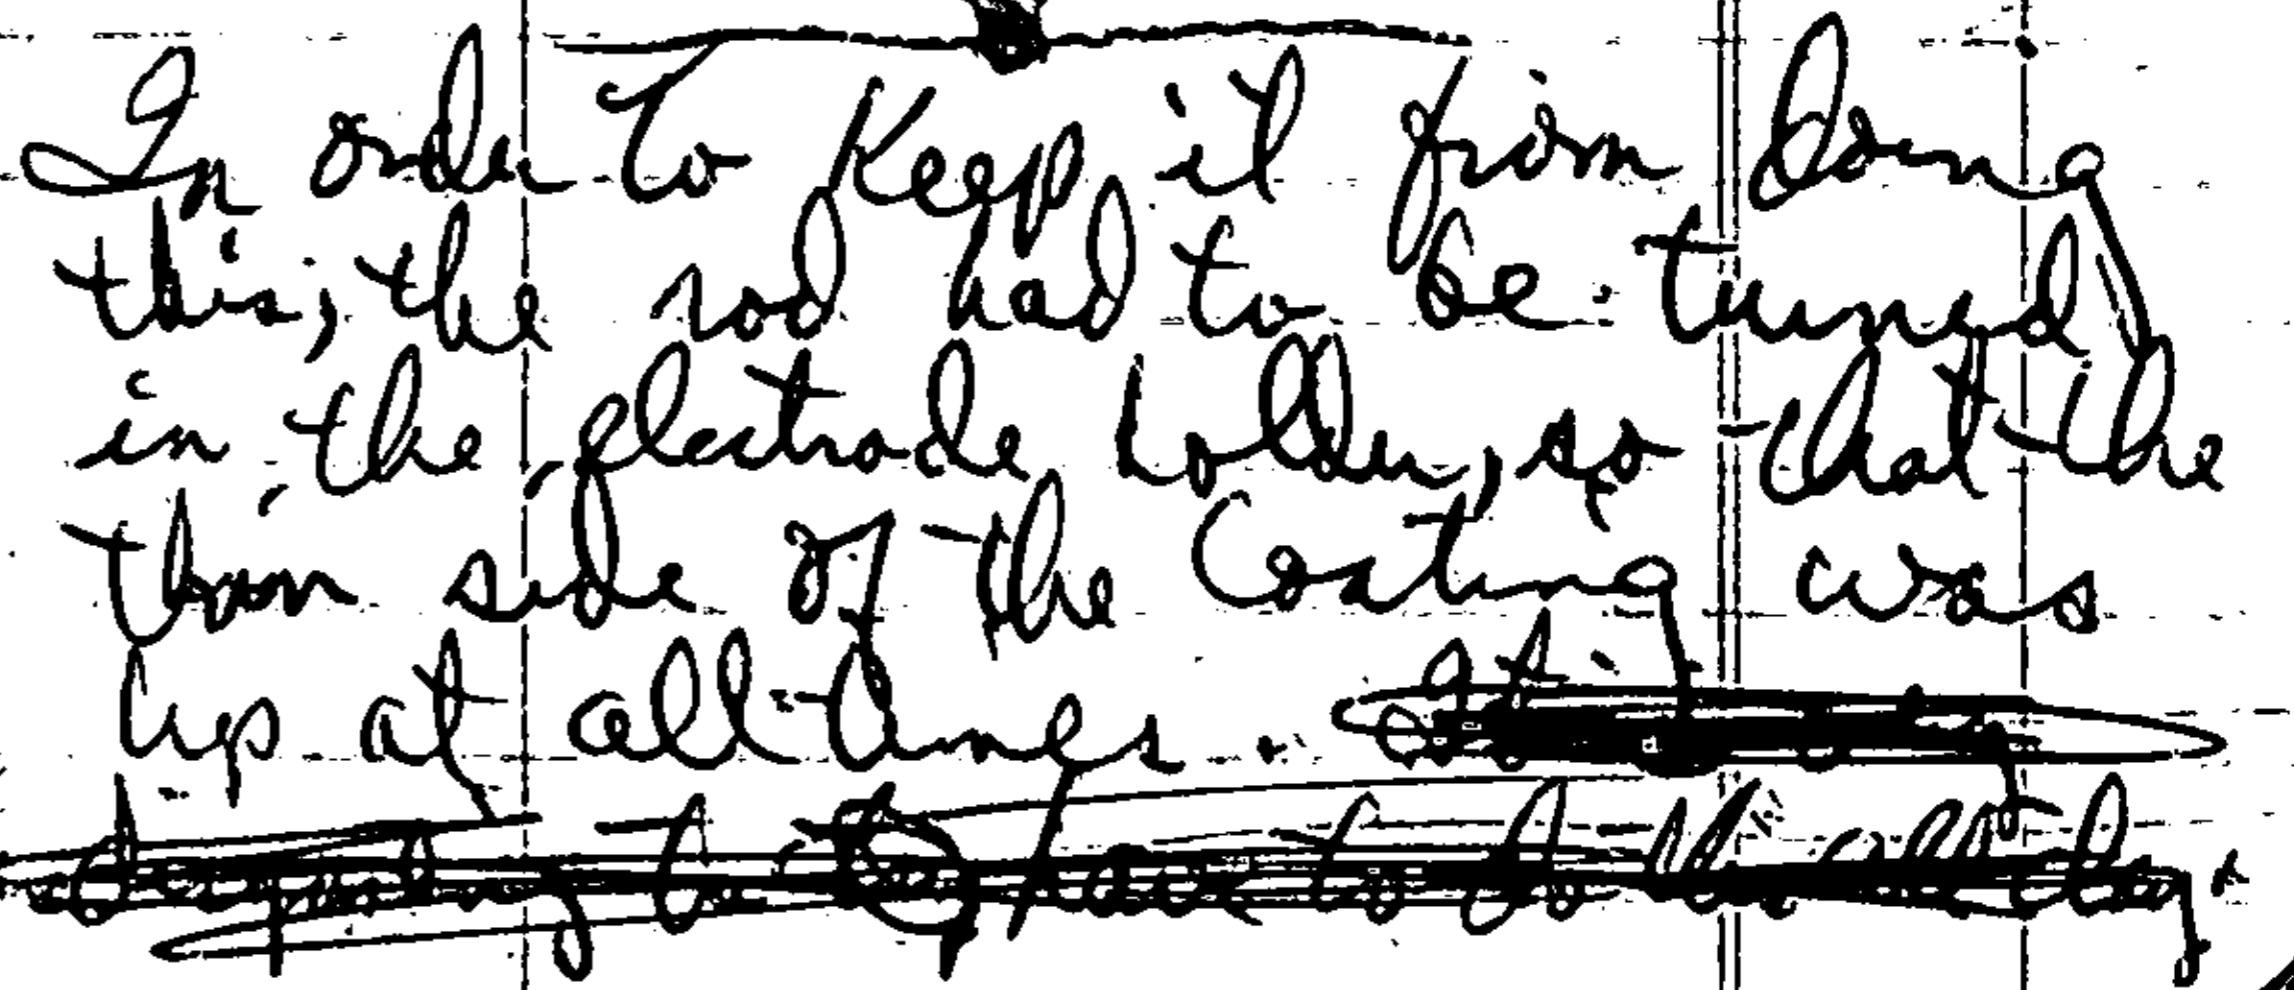 In order to Keep it from doing
this, the rod had to be turned
in the electrode holder, so that the
thin side of the Coating was
up at all times.